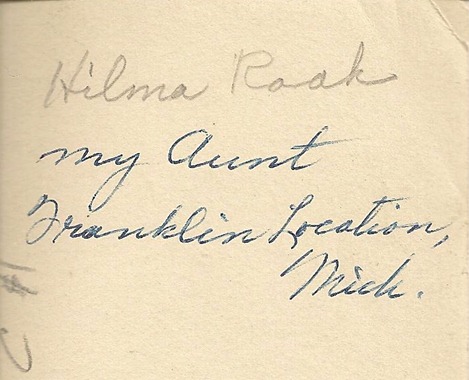 Hilma Raak
my Aunt
Franklin Location,
Mich.